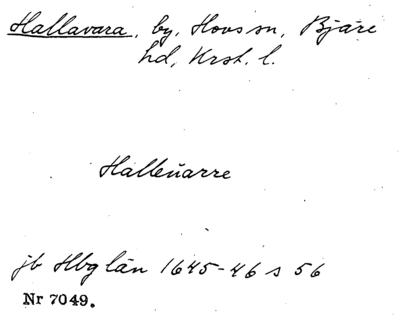 Hallavara, by, Hovs sn, Bjäre
hd, Krst. l.
Halleüarre
jb Hbg län 1645-46 s 56
Nr 7049.